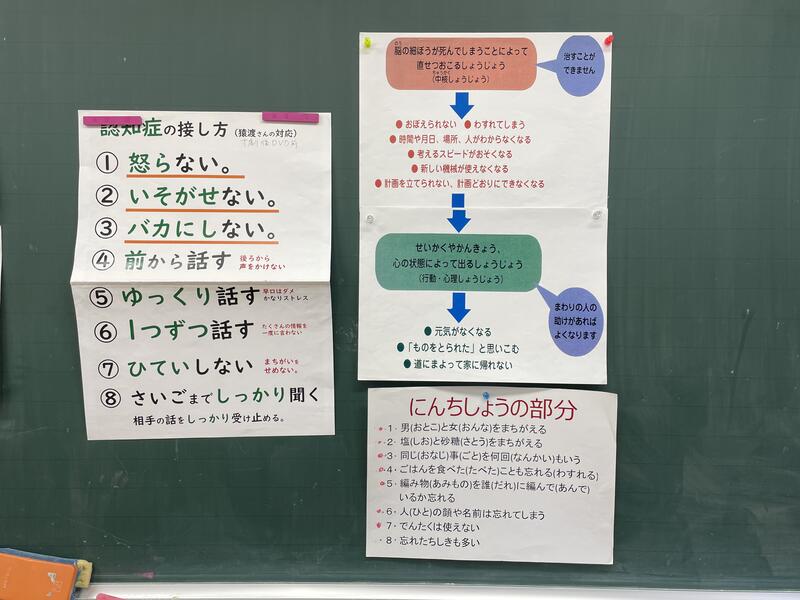 認知症の接し方(猿渡さんの対応)
① 怒らない。
② いそがせない。
③ バカにしない。
④ 前から話す 後ろから
声をかけない
⑤ ゆっくり話す 早口はダメ
かなりストレス
⑥ 1つずつ話す たくさんの情報を
一度に言わない
⑦ ひていしない まちがいを
せめない。
⑧ さいごまでしっかり聞く
相手の話をしっかり受け止める。
脳の細ぼうが死んでしまうことによって
のう
直せつおこるしょうじょう
ちゅうかく
(中核しょうじょう)
治すことが
できません
●おぼえられない ●わすれてしまう
●時間や月日、場所、人がわからなくなる
●考えるスピードがおそくなる
●新しい機械が使えなくなる
●計画を立てられない、計画どおりにできなくなる
せいかくやかんきょう、
心の状態によって出るしょうじょう
(行動・心理しょうじょう)
まわりの人の
助けがあれば
よくなります
●元気がなくなる
●「ものをとられた」と思いこむ
●道にまよって家に帰れない
にんちしょうの部分
・1・男(おとこ)と女(おんな)をまちがえる
・2・塩(しお)と砂糖(さとう)をまちがえる
・3・同じ(おなじ)事(ごと)を何回(なんかい)もいう
・4・ごはんを食べた(たべた)ことも忘れる(わすれる)
・5・編み物(あみもの)を誰(だれ)に編んで(あんで)
いるか忘れる
・6・人(ひと)の顔や名前は忘れてしまう
・7・でんたくは使えない
・8・忘れたちしきも多い